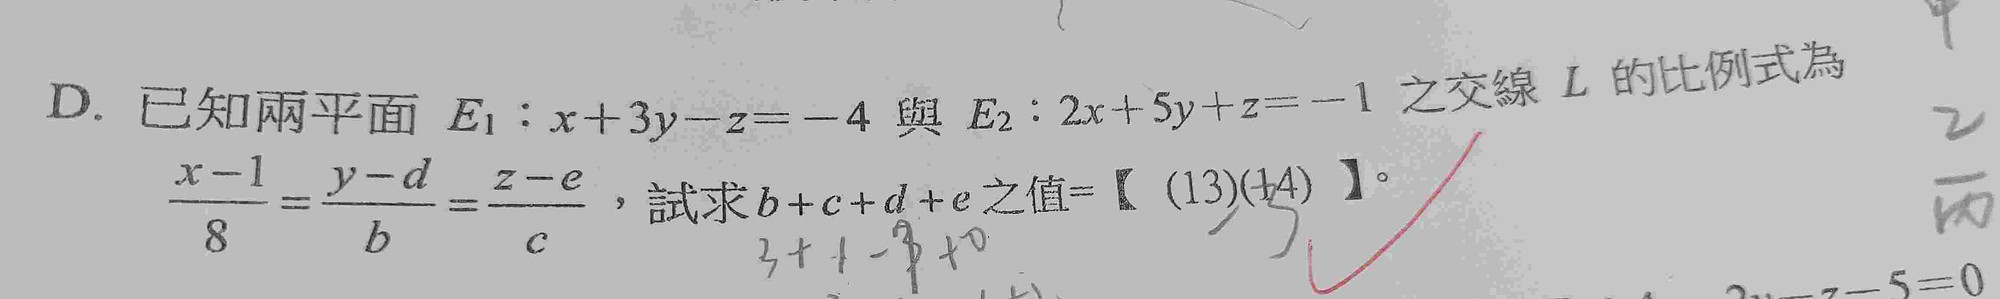 D. 已知兩平面 E₁：x＋3y－z＝－4 與 E₂：2x＋5y＋z＝－1 之交線 L 的比例式為
(x－1)/8＝(y－d)/b＝(z－e)/c，試求b＋c＋d＋e之值=【 (13)(14) 】。
－5＝0